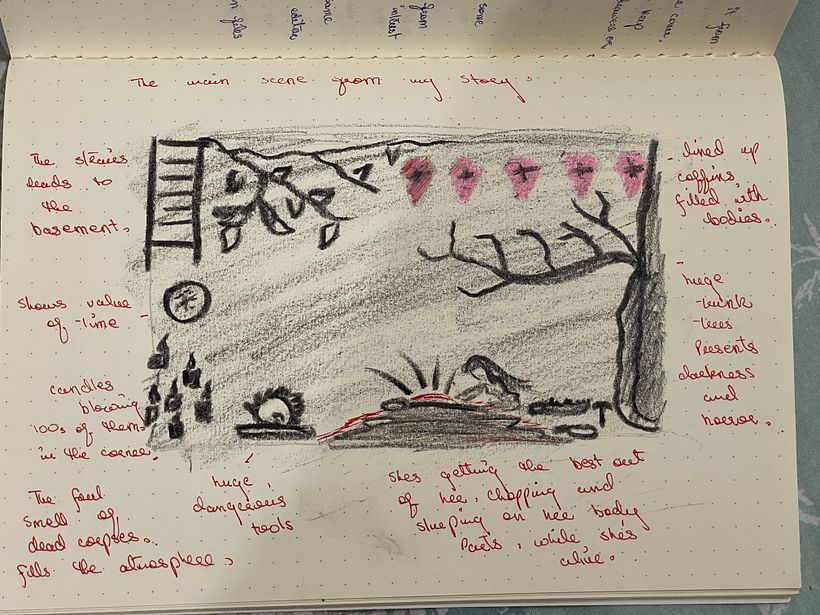 it from
some
same
from
interest
editor
on files
The main scene from my story.
The stairs
leads to
the
basement.
- lined up
coffins
filled with
bodies.
shows value
of time -
- huge
trunk
trees
Presents
darkness
and
horror.
candles
blowing
100s of them
in the corner.
huge
dangerous
tools
shes getting the best out
of her, chopping and
sleeping on her body
Parts, while she's
alive.
The foul
smell of
dead corpses.
fills the atmosphere.